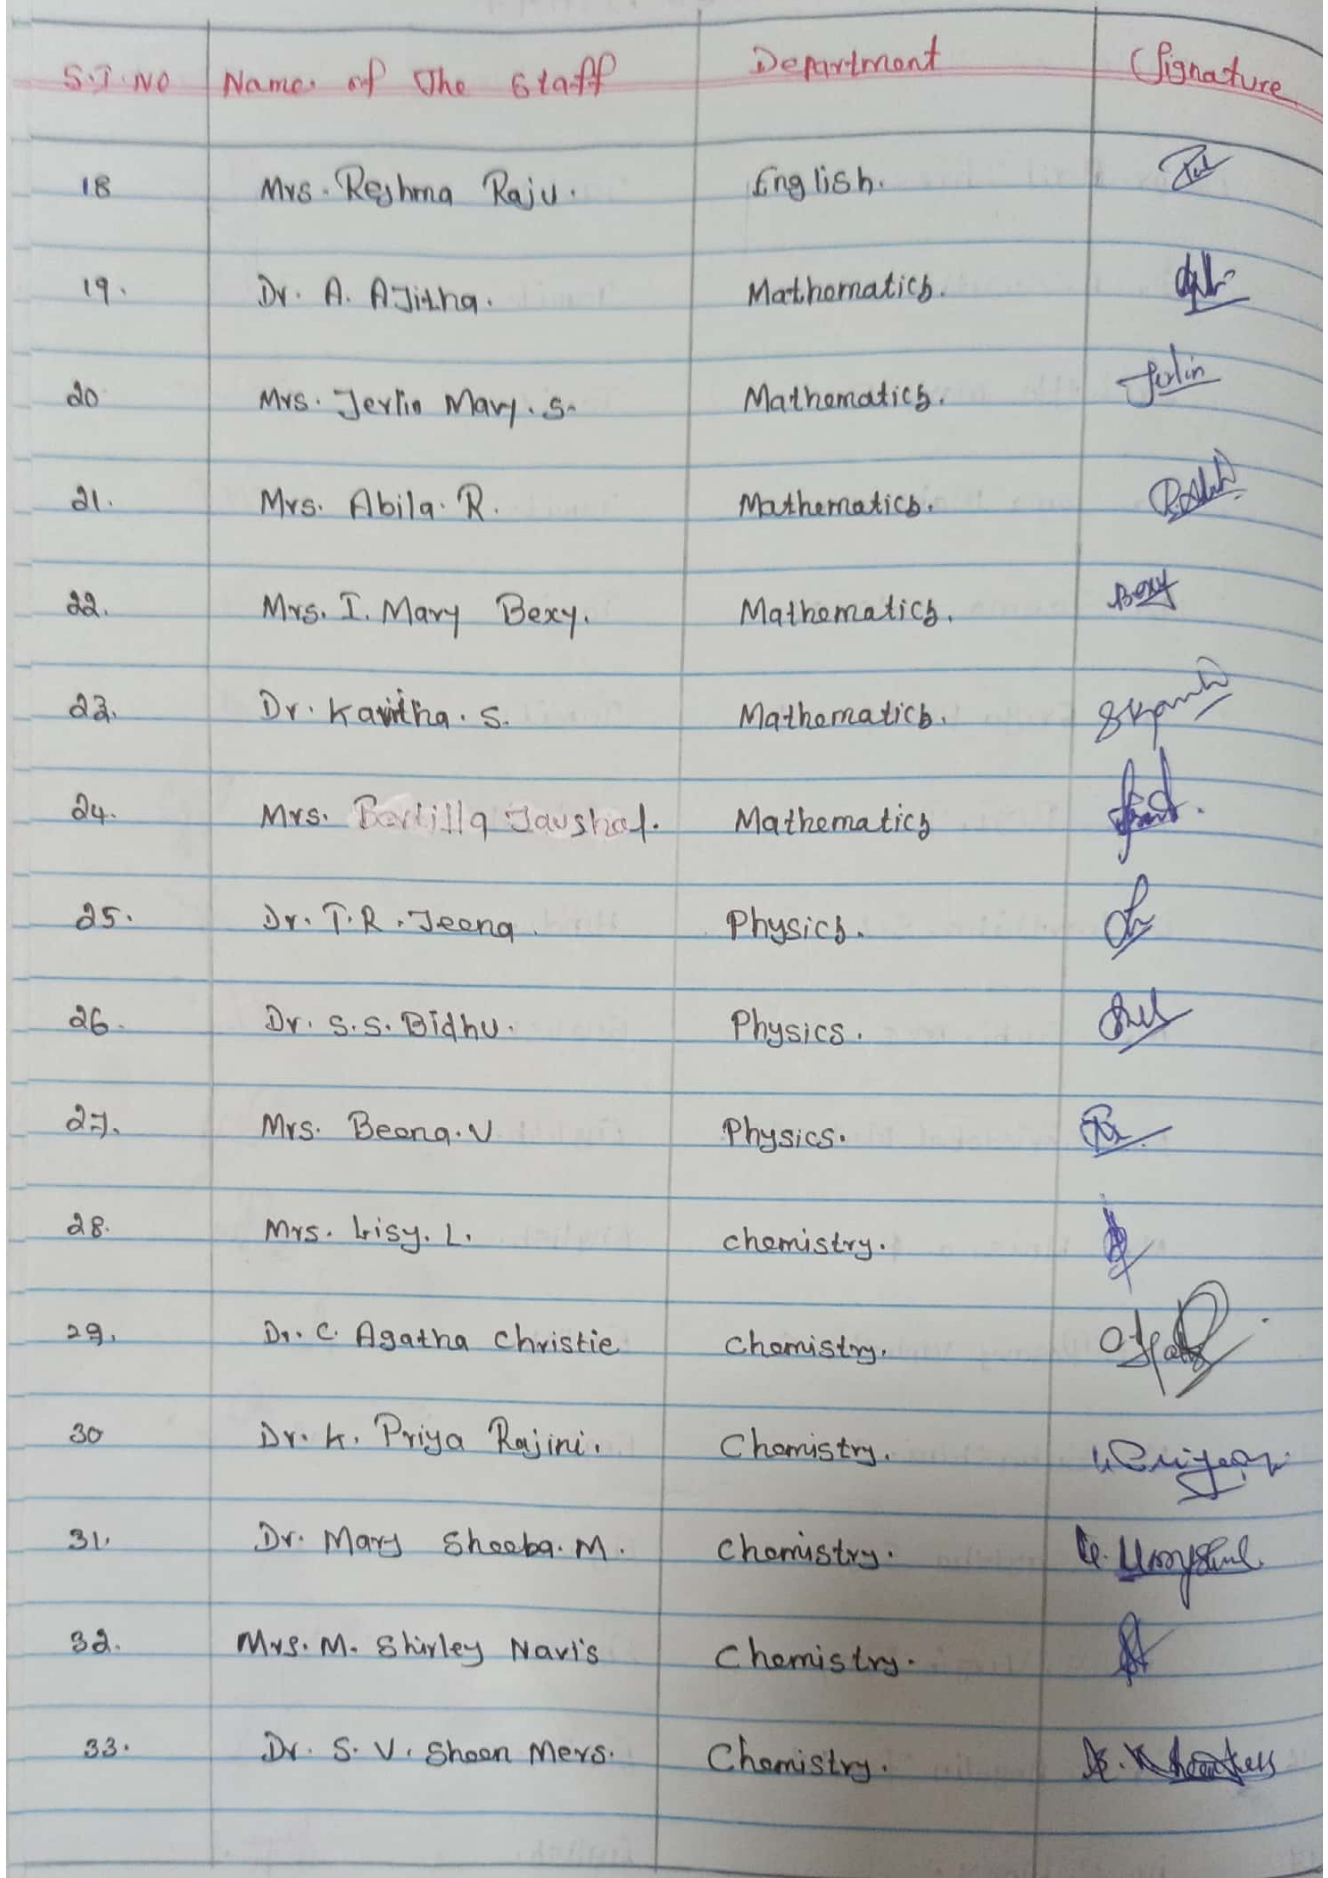 S.I. NO Name of The Staff Department Signature
18 Mrs. Reshma Raju. English.
19. Dr. A. AJitha. Mathematics.
20 Mrs. Jerlin Mary. S. Mathematics. Jerlin
21. Mrs. Abila. R. Mathematics.
22. Mrs. I. Mary Bexy. Mathematics. Bexy
23. Dr. Kavitha. S. Mathematics.
24. Mrs. Bertilla Jaushal. Mathematics
25. Dr. T. R. Jeena. Physics.
26. Dr. S. S. Bidhu. Physics.
27. Mrs. Beena. V Physics.
28. Mrs. Lisy. L. chemistry.
29. Dr. C. Agatha Christie Chemistry.
30 Dr. K. Priya Rajini. Chemistry.
31. Dr. Mary Sheeba. M. Chemistry.
32. Mrs. M. Shirley Navis Chemistry.
33. Dr. S. V. Sheen Mers. Chemistry.